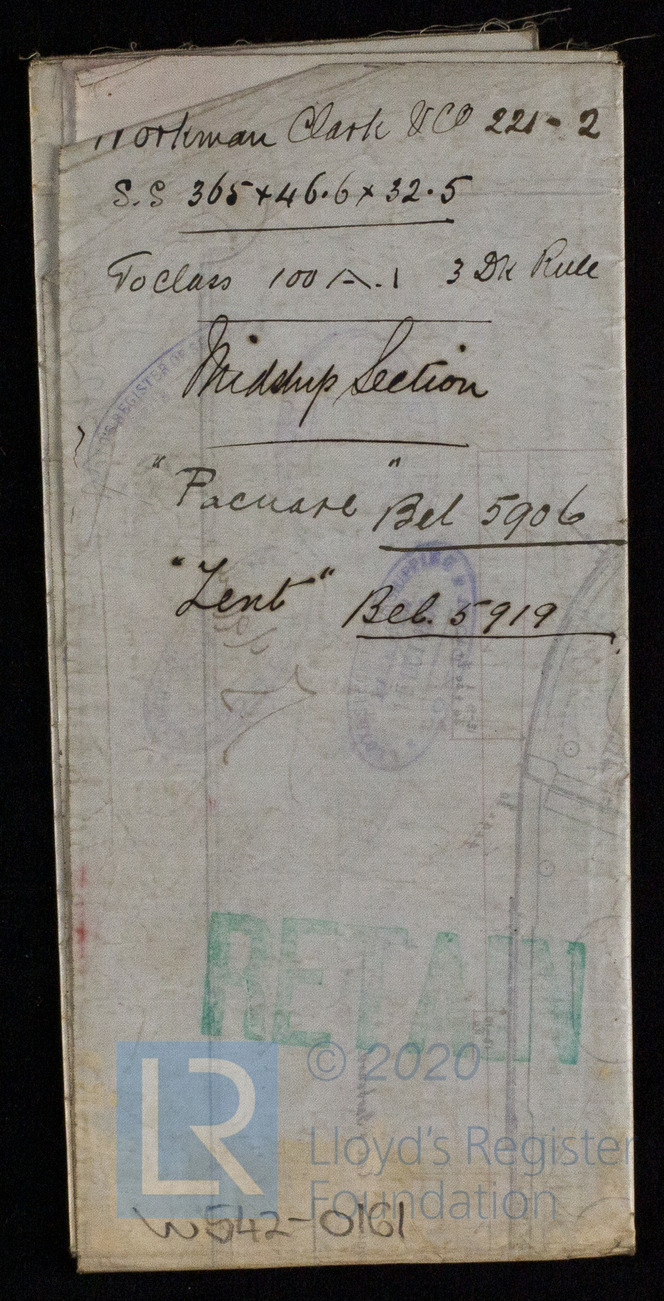 Workman Clark & Co 221-2
S.S 365 x 46.6 x 32.5
To class 100 A.1 3 Dk Rule
Midship Section
"Pacuare" Bel 5906
"Zent" Bel. 5919
RETAIN
LR
© 2020
Lloyd's Register
Foundation
W542-0161